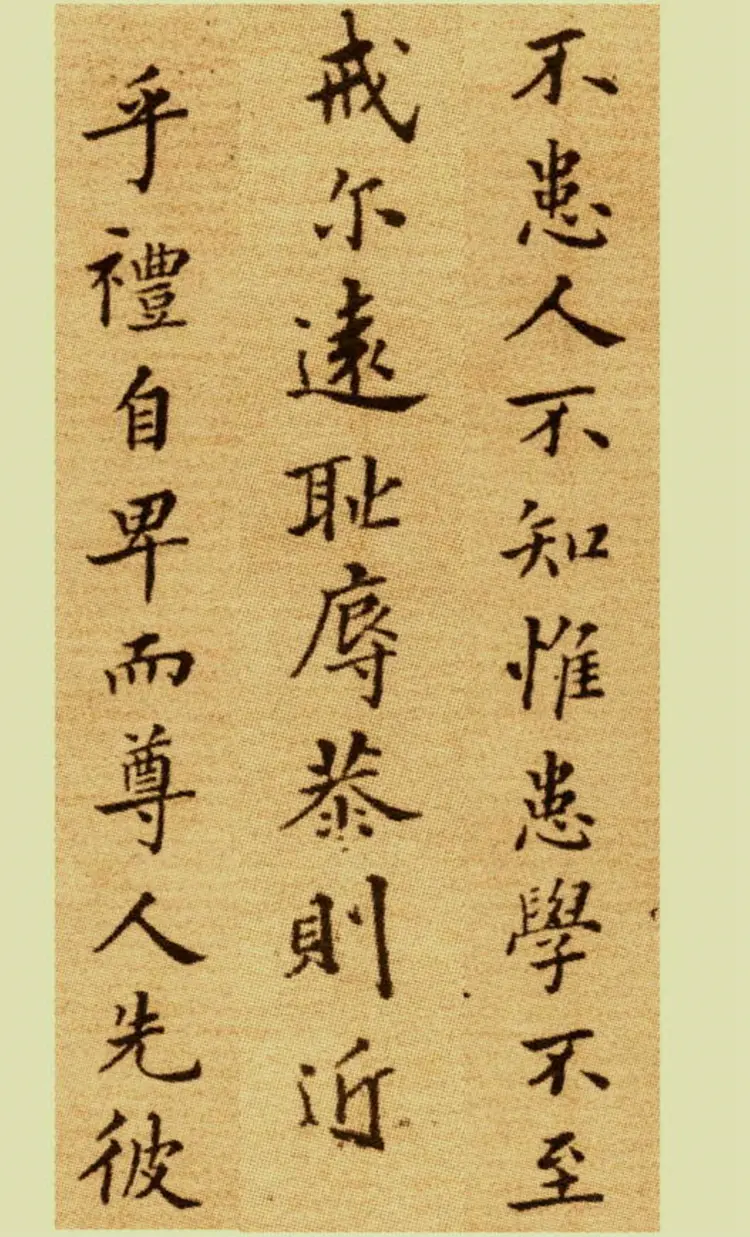 不患人不知惟患學不至
戒尔遠恥辱恭則近
乎禮自卑而尊人先彼